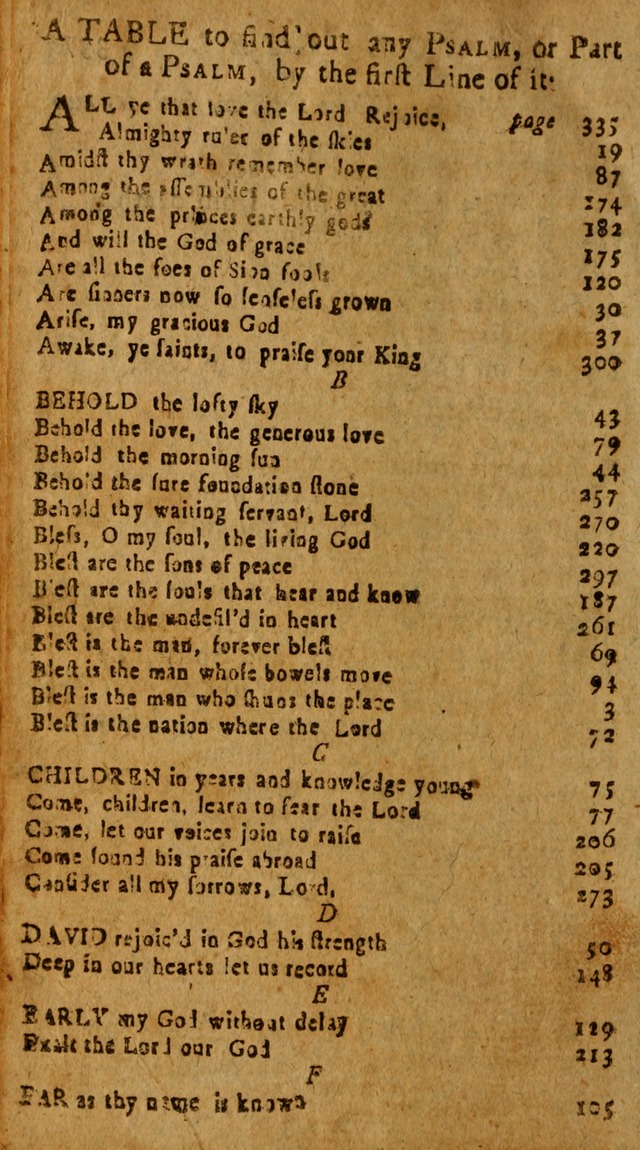 A TABLE to find out any PSALM, or Part
of a PSALM, by the firſt Line of it:
ALL ye that love the Lord Rejoice, page 335
Almighty ruler of the ſkies 19
Amidſt thy wrath remember love 87
Among the aſſemblies of the great 174
Among the princes earthly gods 182
And will the God of grace 175
Are all the foes of Sion fools 120
Are ſinners now ſo ſenſeleſs grown 30
Ariſe, my gracious God 37
Awake, ye ſaints, to praiſe your King 300
B
BEHOLD the lofty ſky 43
Behold the love, the generous love 79
Behold the morning ſun 44
Behold the ſure foundation ſtone 257
Behold thy waiting ſervant, Lord 270
Bleſs, O my ſoul, the living God 220
Bleſt are the ſons of peace 297
Bleſt are the ſouls that hear and know 187
Bleſt are the undefil'd in heart 261
Bleſt is the man, forever bleſt 69
Bleſt is the man whoſe bowels move 94
Bleſt is the man who ſhuns the place 3
Bleſt is the nation where the Lord 72
C
CHILDREN in years and knowledge young 75
Come, children, learn to fear the Lord 77
Come, let our voices join to raiſe 206
Come ſound his praiſe abroad 205
Conſider all my ſorrows, Lord, 273
D
DAVID rejoic'd in God his ſtrength 50
Deep in our hearts let us record 148
E
EARLY my God without delay 129
Exalt the Lord our God 213
F
FAR as thy name is known 105